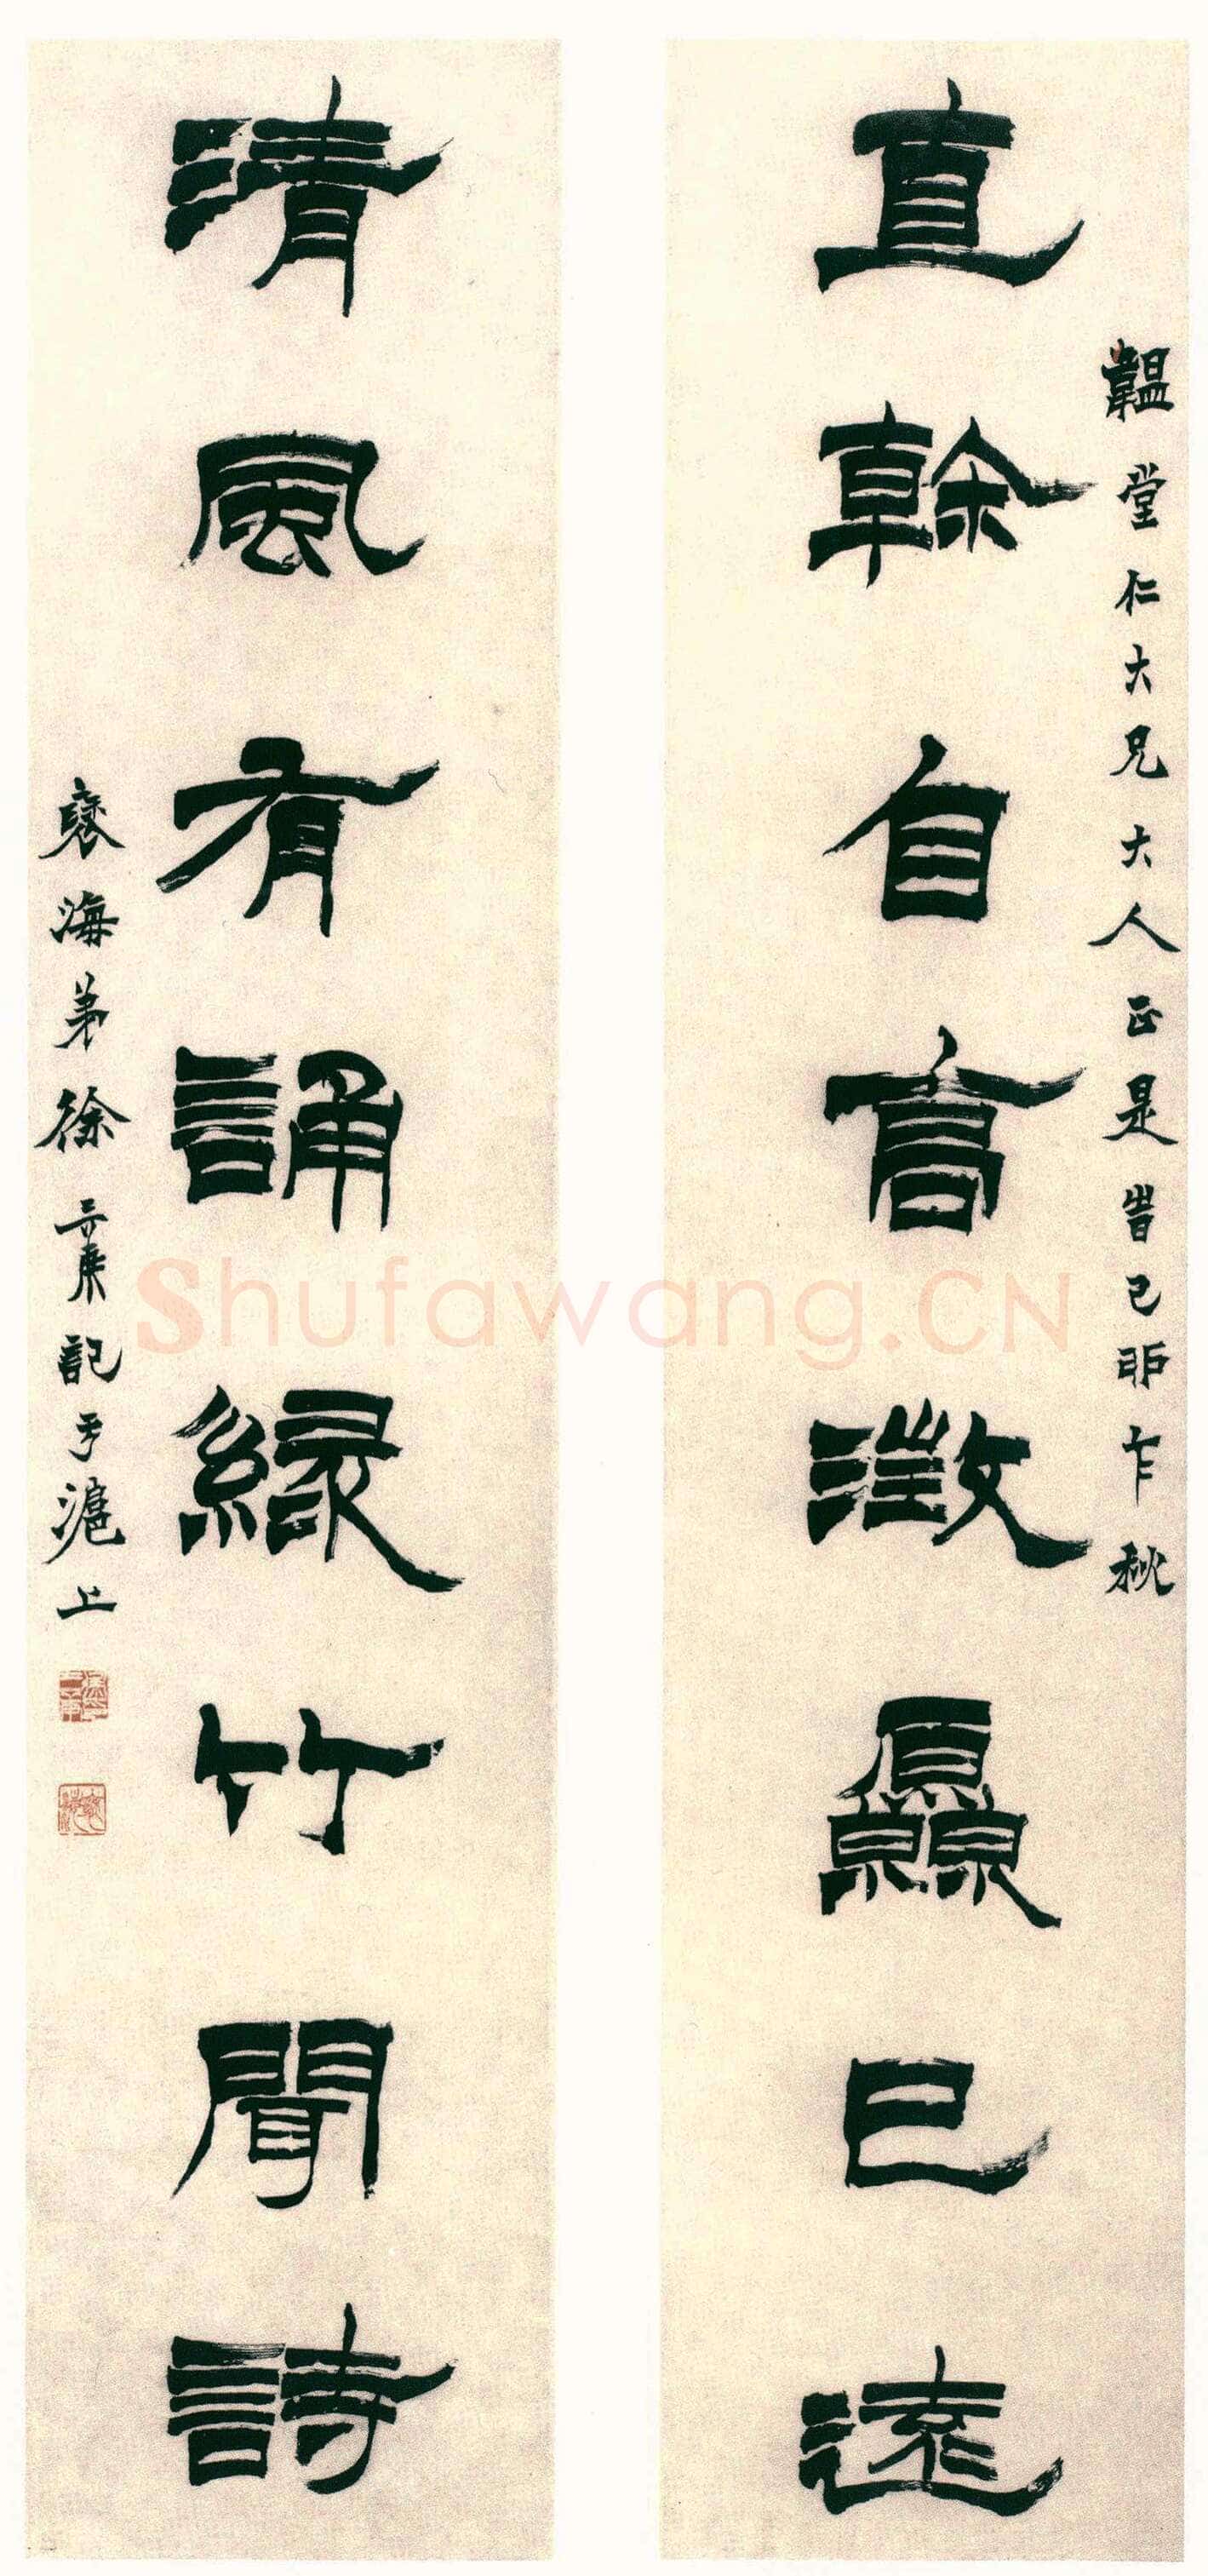 韞堂仁大兄大人正是旹己卯乍秋
直榦自高澂厵已遠
清風有誦綠竹聞詩
褎海弟徐三庚記于滬上
Shufawang.CN